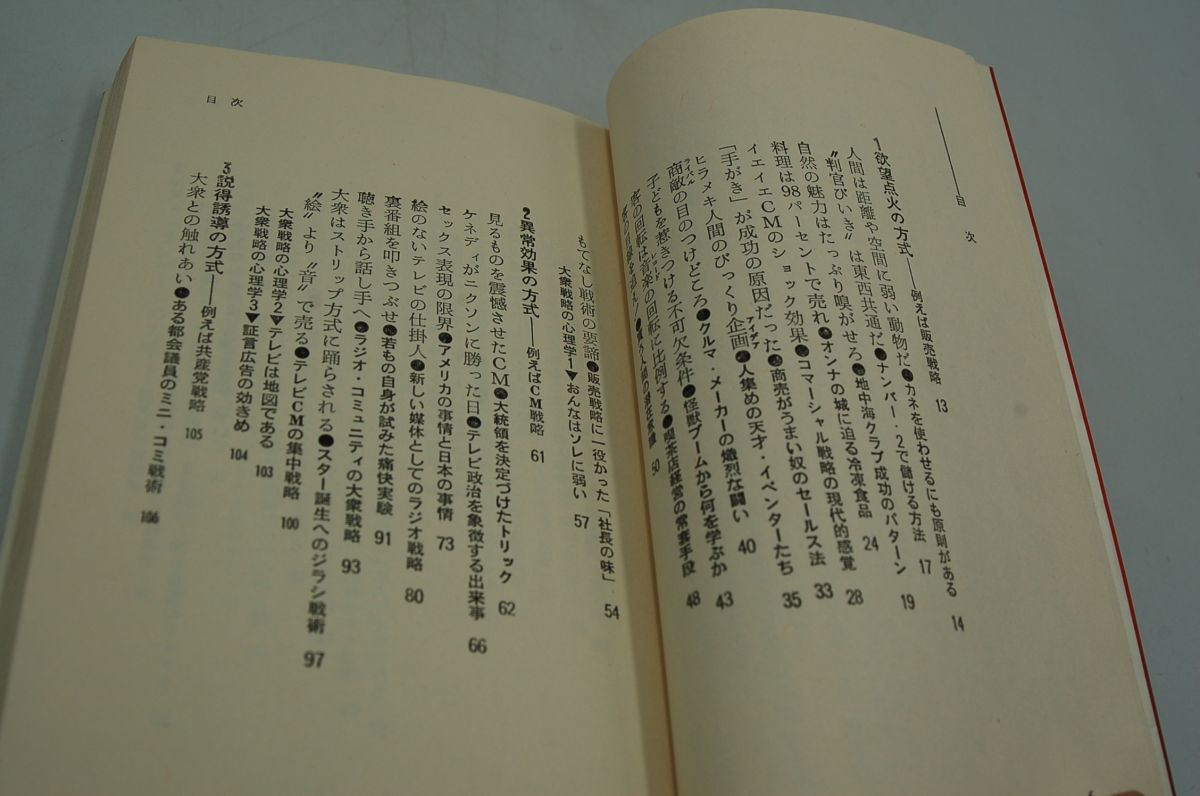 目次
1 欲望点火の方式——例えば販売戦略 13
人間は距離や空間に弱い動物だ●カネを使わせるにも原則がある 14
〝判官びいき〟は東西共通だ●ナンバー・2で儲ける方法 17
自然の魅力はたっぷり嗅がせろ●地中海クラブ成功のパターン 19
料理は98パーセントで売れ●オンナの城に迫る冷凍食品 24
イエイエCMのショック効果●コマーシャル戦略の現代的感覚 28
「手がき」が成功の原因だった●商売がうまい奴のセールス法 33
ヒラメキ人間のびっくり企画●人集めの天才・イベンターたち 35
アイデア
商敵の目のつけどころ●クルマ・メーカーの熾烈な闘い 40
ライバル
子どもを惹きつける不可欠条件●怪獣ブームから何を学ぶか 43
客の回転は音楽の回転に比例する●喫茶店経営の常套手段 48
50
もてなし戦術の要諦●販売戦略に一役かった「社長の味」 54
大衆戦略の心理学1▼おんなはソレに弱い 57
2 異常効果の方式——例えばCM戦略 61
見るものを震憾させたCM●大統領を決定づけたトリック 62
ケネディがニクソンに勝った日●テレビ政治を象徴する出来事 66
セックス表現の限界●アメリカの事情と日本の事情 73
絵のないテレビの仕掛人●新しい媒体としてのラジオ戦略 80
裏番組を叩きつぶせ●若もの自身が試みた痛快実験 91
聴き手から話し手へ●ラジオ・コミュニティの大衆戦略 93
大衆はストリップ方式に踊らされる●スター誕生へのジラシ戦術 97
〝絵〟より〝音〟で売る●テレビCMの集中戦略 100
大衆戦略の心理学2▼テレビは地図である 103
大衆戦略の心理学3▼証言広告の効きめ 104
3 説得誘導の方式——例えば共産党戦略 105
大衆との触れあい●ある都会議員のミニ・コミ戦術 106
目次